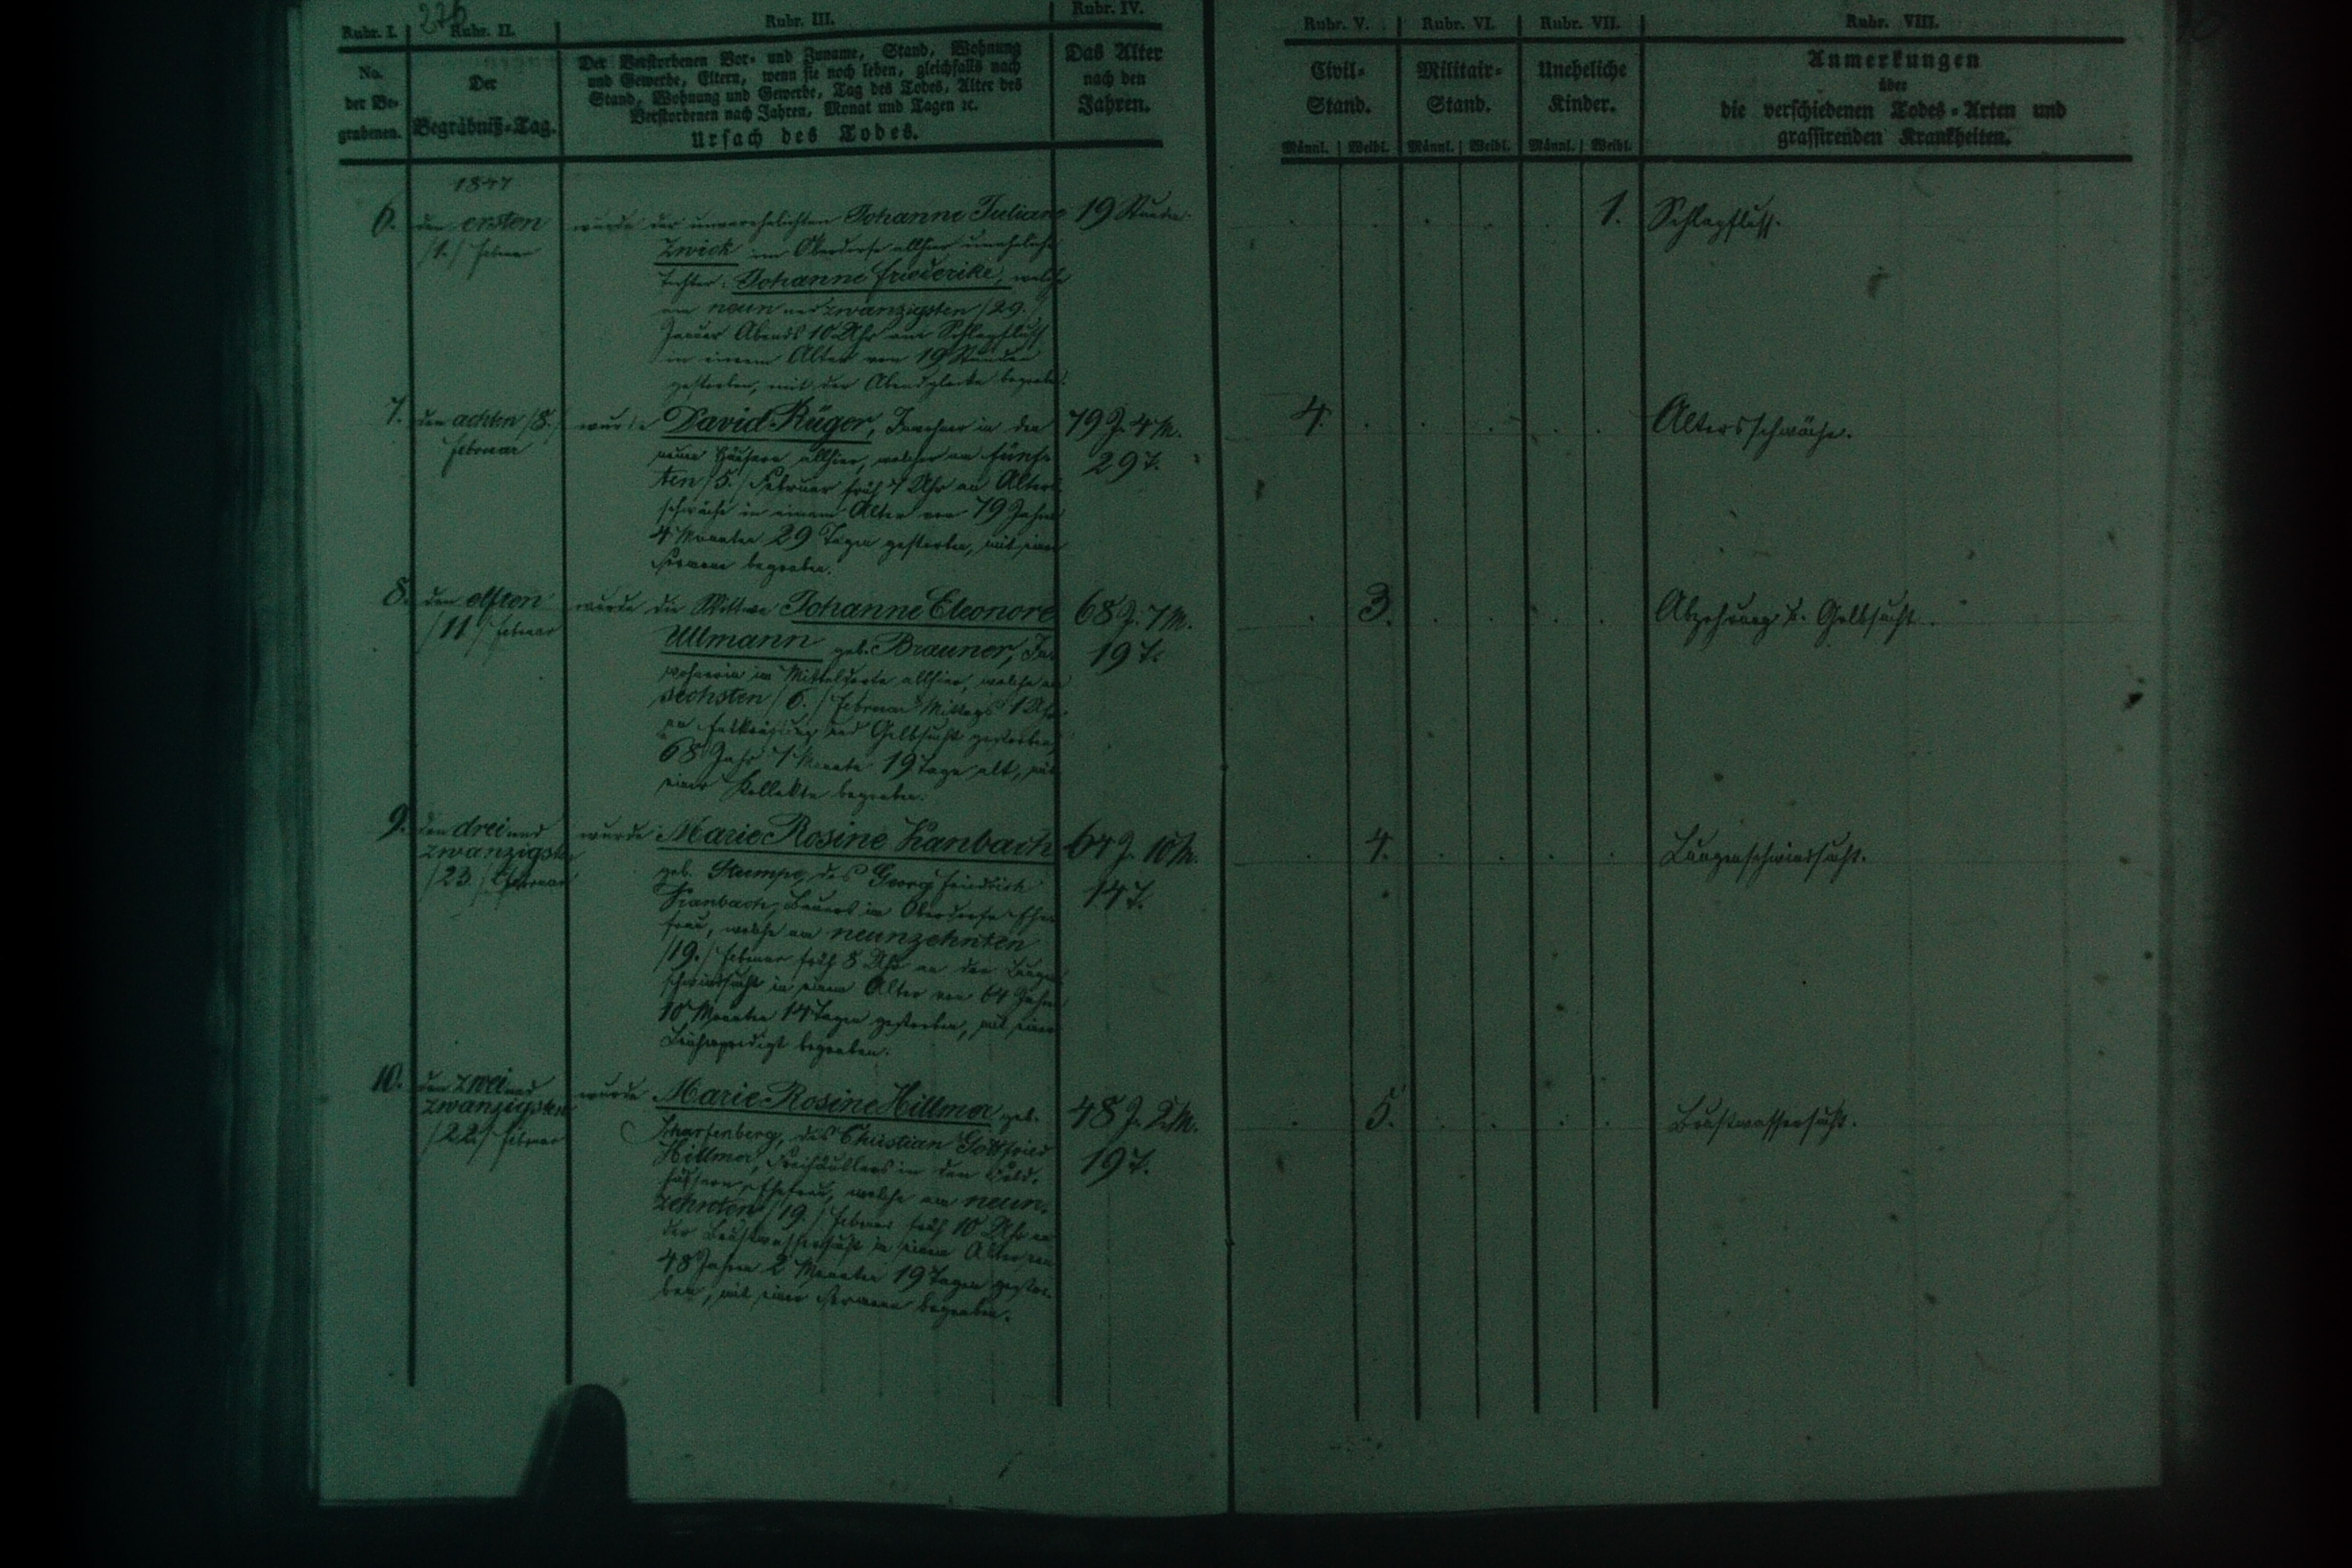 226
Rubr. I. Rubr. II. Rubr. III. Rubr. IV. Rubr. V. Rubr. VI. Rubr. VII. Rubr. VIII.
No. der Be- grabenen.
Der Begräbniß-Tag.
Der Verstorbenen Vor- und Zuname, Stand, Wohnung
und Gewerbe, Eltern, wenn sie noch leben, gleichfalls nach
Stand, Wohnung und Gewerbe, Tag des Todes, Alter des
Verstorbenen nach Jahren, Monat und Tagen ꝛc.
Ursach des Todes.
Das Alter
nach den
Jahren.
Civil-
Stand.
Militair-
Stand.
Uneheliche
Kinder.
Männl. Weibl. Männl. Weibl. Männl. Weibl.
Anmerkungen
über
die verschiedenen Todes-Arten und
grassirenden Krankheiten.
1847
6. den ersten
/1./ Februar
wurde der unverehelichten Johanne Juliane
Zwick im Oberdorfe allhier uneheliche
Tochter: Johanne Friederike, welche
am neun und zwanzigsten /29./
Januar Abends 10 Uhr am Schlagfluß
in einem Alter von 19 Stunden
gestorben, mit der Abendglocke begraben.
19 Stunden.
1.
Schlagfluß.
7. den achten /8./
Februar
wurde David Rüger, Inwohner in den
neuen Häusern allhier, welcher am fünf-
ten /5./ Februar früh 7 Uhr an Alters-
schwäche in einem Alter von 79 Jahren
4 Monaten 29 Tagen gestorben, mit einem
Sermon begraben.
79 J. 4 M.
29 T.
4.
Altersschwäche.
8. den elften
/11./ Februar
wurde die Wittwe Johanne Eleonore
Ullmann geb. Brauner, In-
wohnerin im Mitteldorfe allhier, welche am
sechsten /6./ Februar Mittags 1 Uhr
an Entkräftung und Gelbsucht gestorben,
68 Jahr 7 Monate 19 Tage alt, mit
einer Kollekte begraben.
68 J. 7 M.
19 T.
3.
Abzehrung u. Gelbsucht.
9. den drei und
zwanzigsten
/23./ Februar
wurde Marie Rosine Hanbach
geb. Stumpe, des Georg Friedrich
Hanbach, Bauers im Oberdorfe Ehe-
frau, welche am neunzehnten
/19./ Februar früh 8 Uhr an der Lungen-
schwindsucht in einem Alter von 64 Jahren
10 Monaten 14 Tagen gestorben, mit einer
Leichenpredigt begraben.
64 J. 10 M.
14 T.
4.
Lungenschwindsucht.
10. den zwei und
zwanzigsten
/22./ Februar
wurde Marie Rosine Hillmer geb.
Scharfenberg, des Christian Gottfried
Hillmer, Freihäuslers in den Feld-
häusern, Ehefrau, welche am neun-
zehnten /19./ Februar früh 10 Uhr an
der Brustwassersucht in einem Alter von
48 Jahren 2 Monaten 19 Tagen gestor-
ben, mit einem Sermon begraben.
48 J. 2 M.
19 T.
5.
Brustwassersucht.